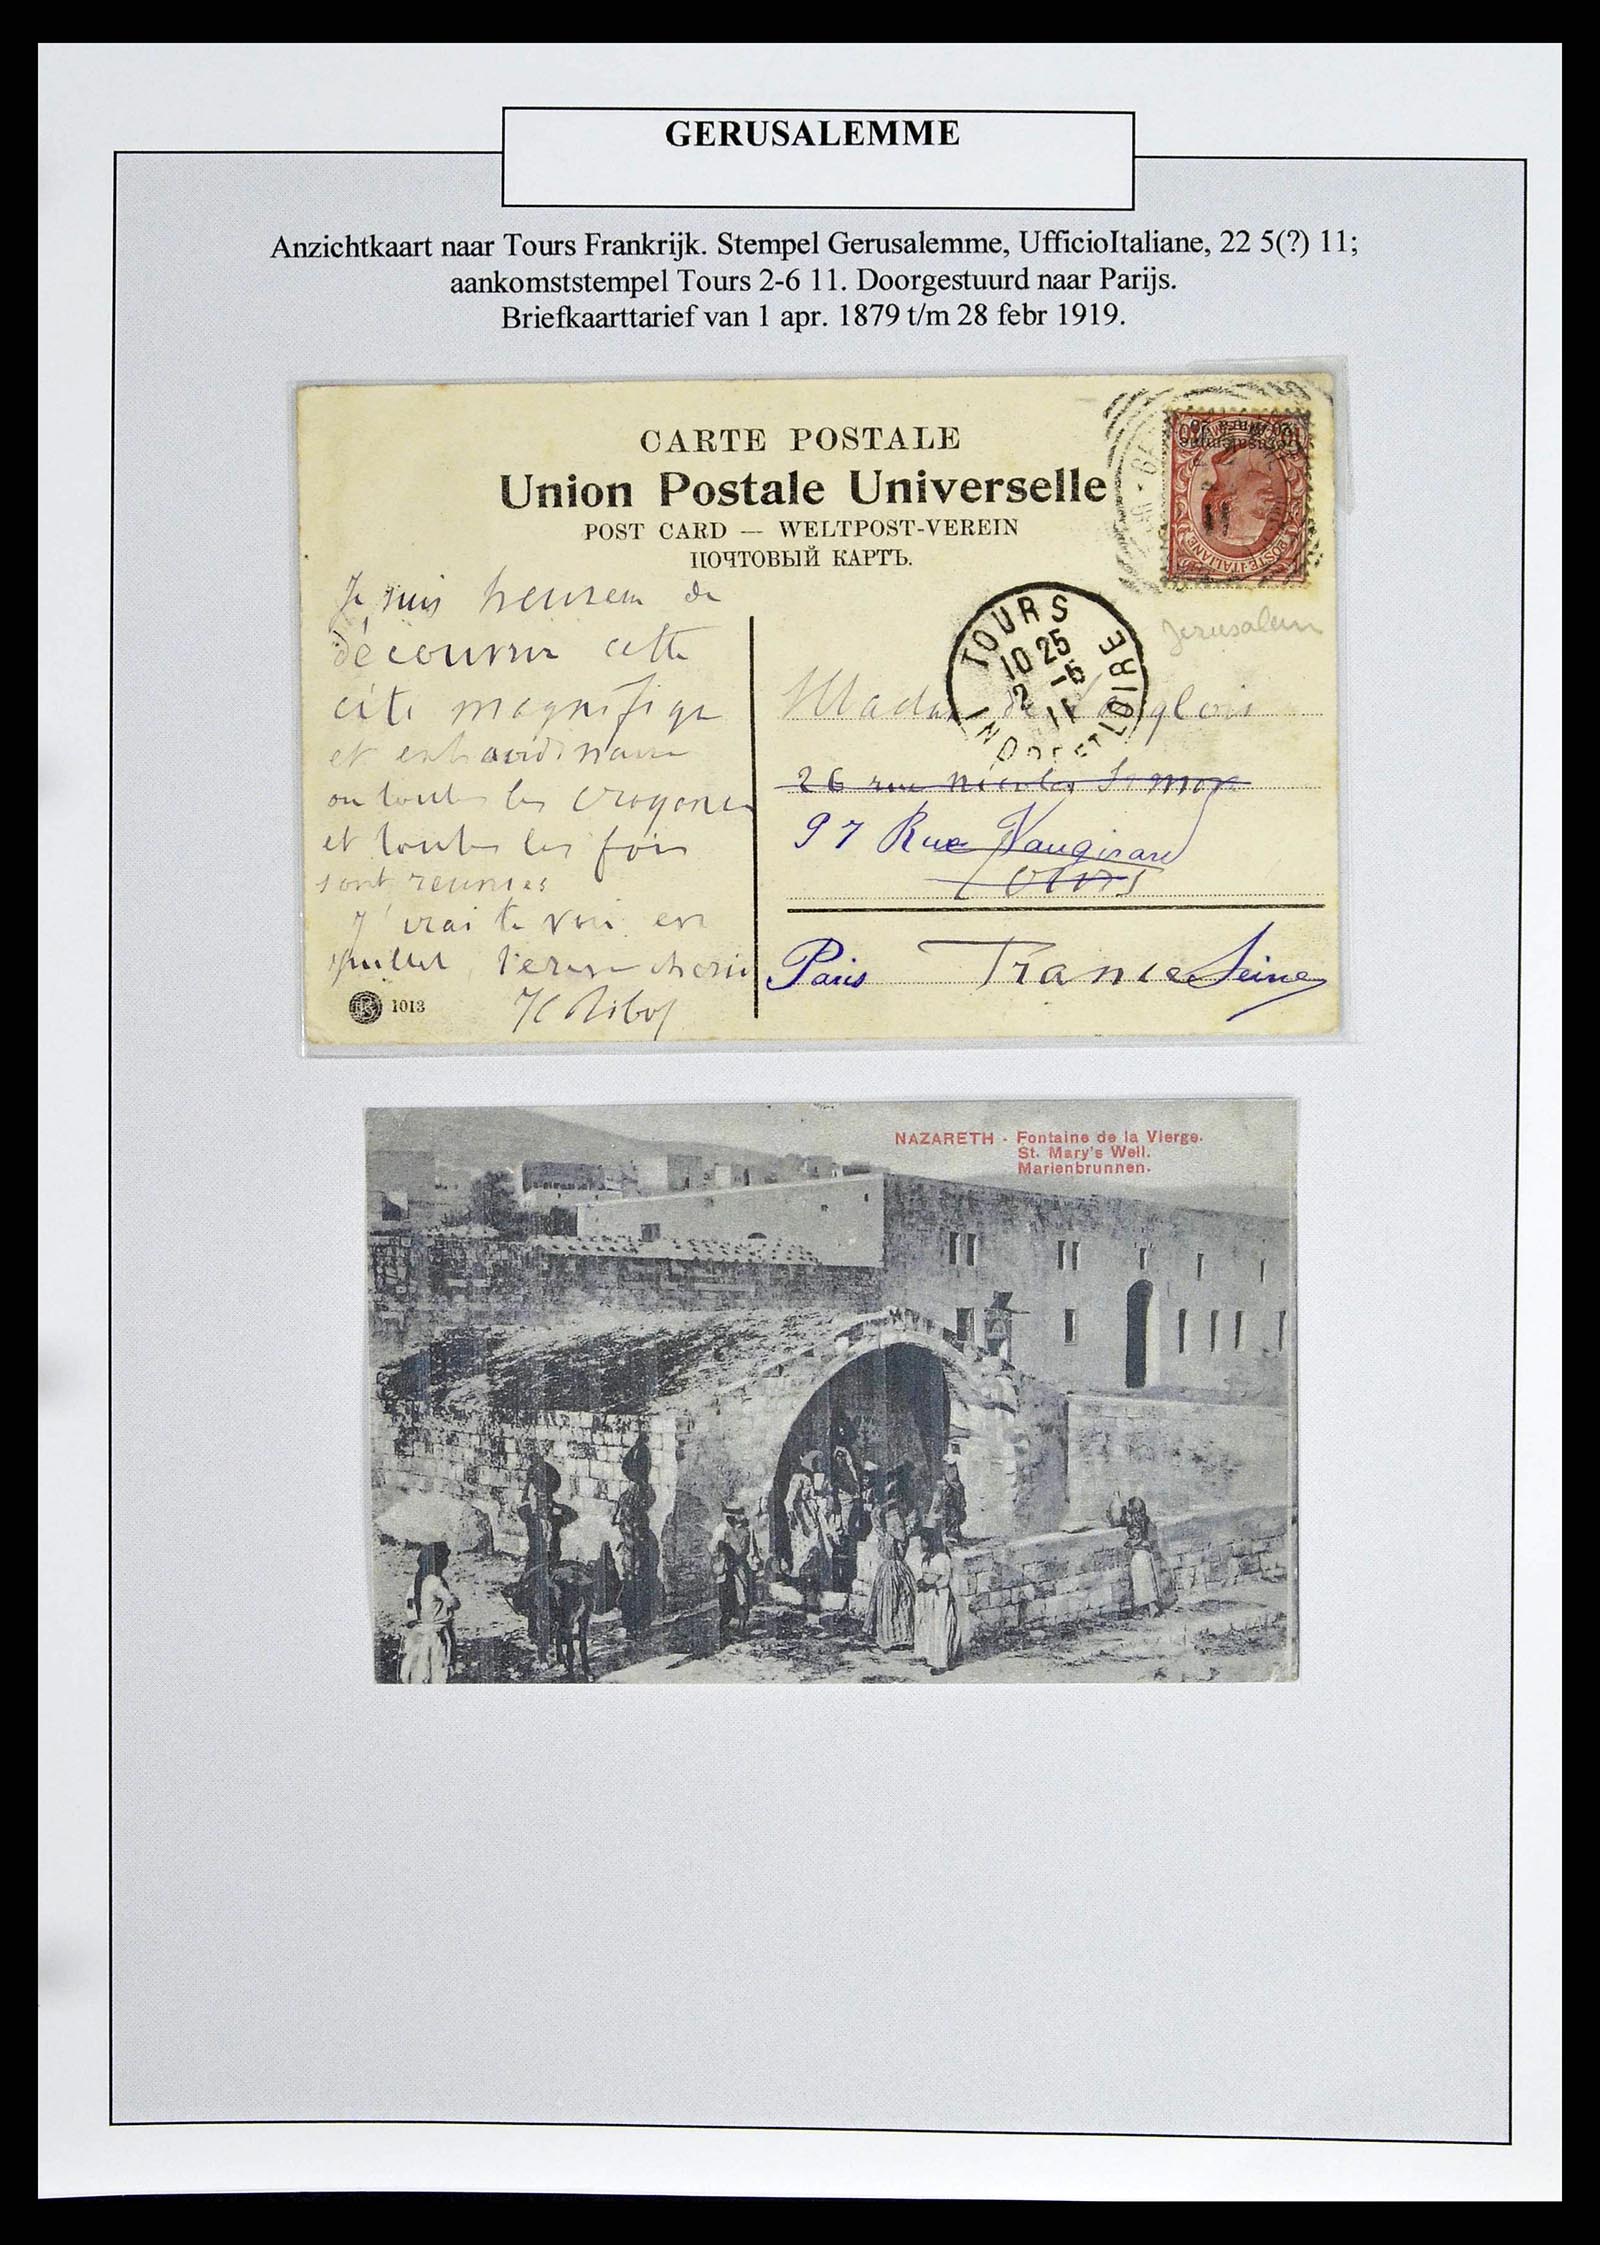 GERUSALEMME
Anzichtkaart naar Tours Frankrijk. Stempel Gerusalemme, UfficioItaliane, 22 5(?) 11;
aankomststempel Tours 2-6 11. Doorgestuurd naar Parijs.
Briefkaarttarief van 1 apr. 1879 t/m 28 febr 1919.
CARTE POSTALE
Union Postale Universelle
POST CARD — WELTPOST-VEREIN
ПОЧТОВЫЙ КАРТЪ.
POSTE·ITALIANE
Jerusalem
TOURS
10 25
2 -6
11
INDRE ET LOIRE
Je suis heureux de
découvrir cette
cité magnifique
et extraordinaire
ou toutes les croyances
et toutes les fois
sont reunies
J'irai te voir en
juillet
1013
Madame de Langlois
26 rue nicolas Simon
97 Rue Vaugirard
Tours
Paris France Seine
NAZARETH - Fontaine de la Vierge.
St. Mary's Well.
Marienbrunnen.